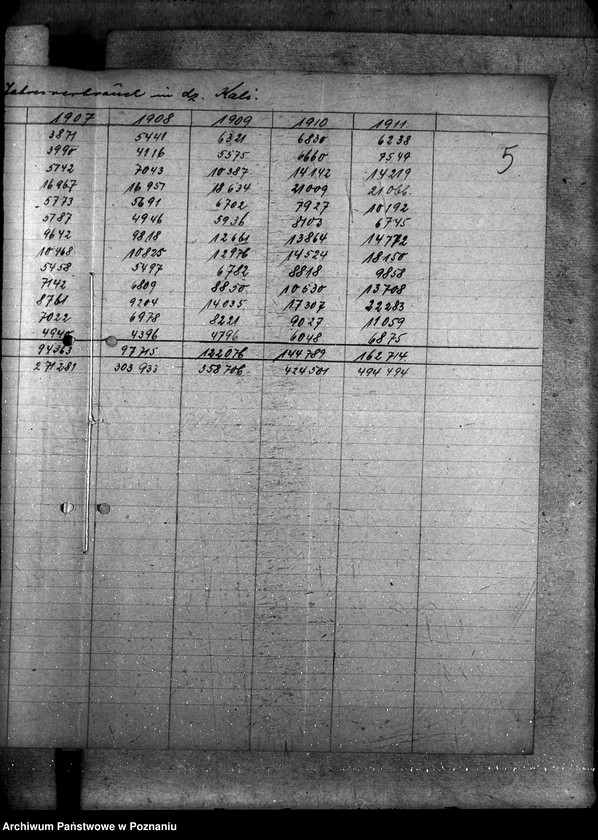 Jahresverbrauch in dz. Kali.
5
1907 1908 1909 1910 1911
3871 5441 6321 6830 6238
3990 4116 5575 6660 7549
5742 7043 10387 14142 14219
16967 16951 18634 21009 21066
5773 5691 6702 7927 10192
5787 4946 5936 8103 6745
9642 9818 12661 13864 14772
10468 10825 12976 14524 18150
5458 5497 6782 8818 9858
7142 6809 8850 10630 13708
8761 9204 14035 17307 22283
7022 6978 8221 9027 11059
4940 4396 4796 6048 6875
94363 97715 122076 144789 162714
271281 303933 358706 424501 494494
Archiwum Państwowe w Poznaniu